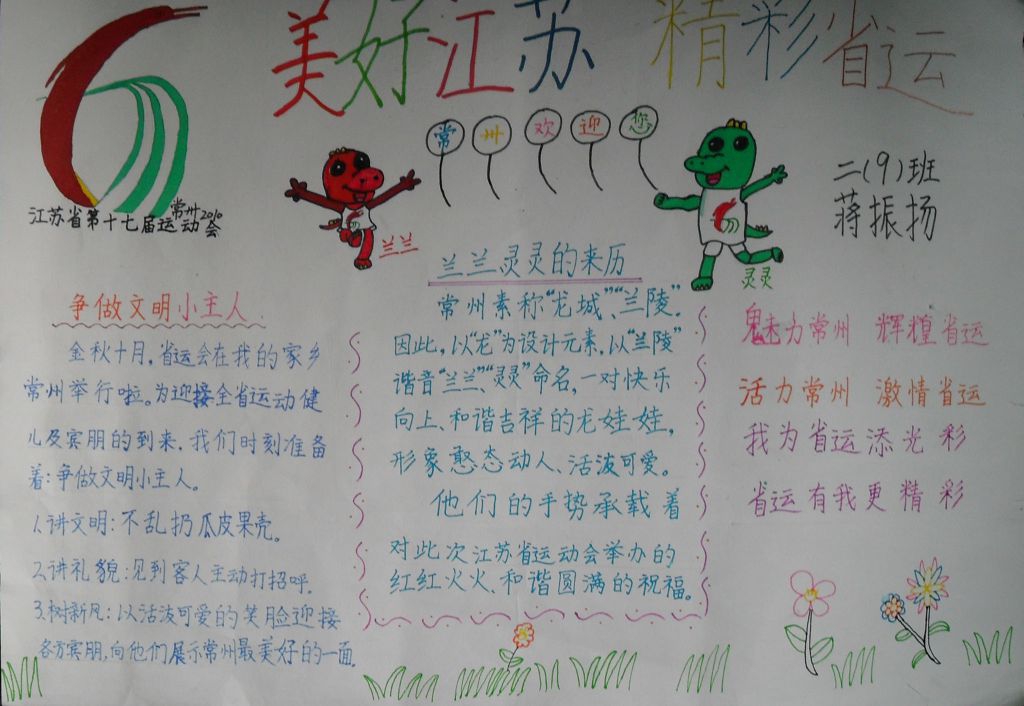 美好江苏 精彩省运
常州欢迎您
江苏省第十七届运动会
常州2010
二(9)班
蒋振扬
兰兰
灵灵
争做文明小主人
金秋十月,省运会在我的家乡
常州举行啦。为迎接全省运动健
儿及宾朋的到来,我们时刻准备
着:争做文明小主人。
1.讲文明:不乱扔瓜皮果壳。
2.讲礼貌:见到客人主动打招呼。
3.树新风:以活泼可爱的笑脸迎接
各方宾朋,向他们展示常州最美好的一面。
兰兰灵灵的来历
常州素称“龙城”、“兰陵”。
因此,以“龙”为设计元素,以“兰陵”
谐音“兰兰”、“灵灵”命名,一对快乐
向上、和谐吉祥的龙娃娃,
形象憨态动人、活泼可爱。
他们的手势承载着
对此次江苏省运动会举办的
红红火火、和谐圆满的祝福。
魅力常州 辉煌省运
活力常州 激情省运
我为省运添光彩
省运有我更精彩